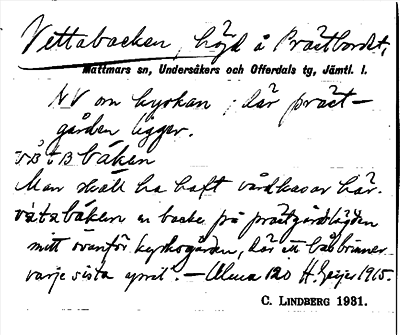 Vettabacken, höjd å Prästbordet,
Mattmars sn, Undersåkers och Offerdals tg, Jämtl. l.
NV om kyrkan, där präst-
gården ligger.
båken
Man skall ha haft vårdkasar här.
båken en backe på prästgårdslägden
mitt ovanför kyrkogården, där ett bål brinner
varje sista april. – 120 H. Geijer 1915.
C. LINDBERG 1931.